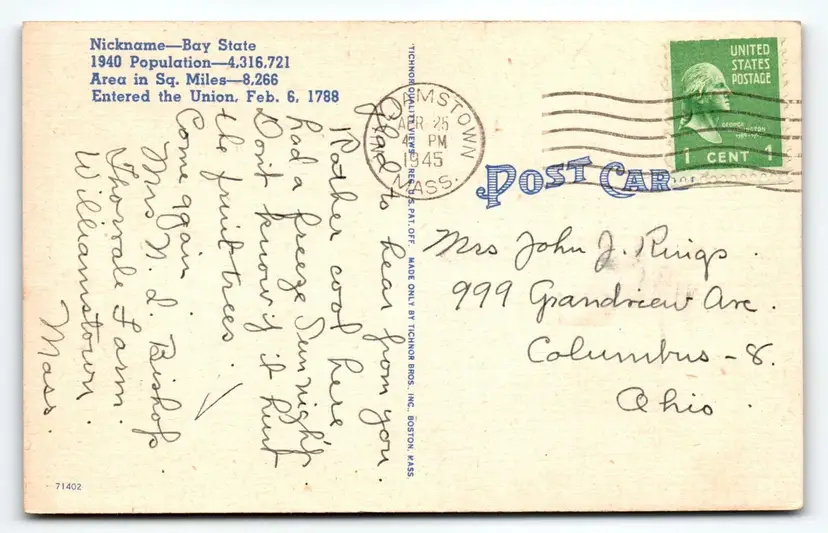 Nickname—Bay State
1940 Population—4,316,721
Area in Sq. Miles—8,266
Entered the Union, Feb. 6, 1788
Glad to hear from you.
Rather cool here
had a freeze Sun night
Don't know if it hurt
the fruit trees.
Come again.
Mrs N. L. Bishop.
Thorvale Farm.
Williamstown.
Mass.
71402
"TICHNOR QUALITY VIEWS" REG. U.S. PAT. OFF. MADE ONLY BY TICHNOR BROS., INC., BOSTON, MASS.
WILLIAMSTOWN
APR 25
4 PM
1945
MASS.
UNITED
STATES
POSTAGE
GEORGE
WASHINGTON
1 CENT 1
POST CARD
Mrs John J. Rings.
999 Grandview Ave.
Columbus - 8.
Ohio.